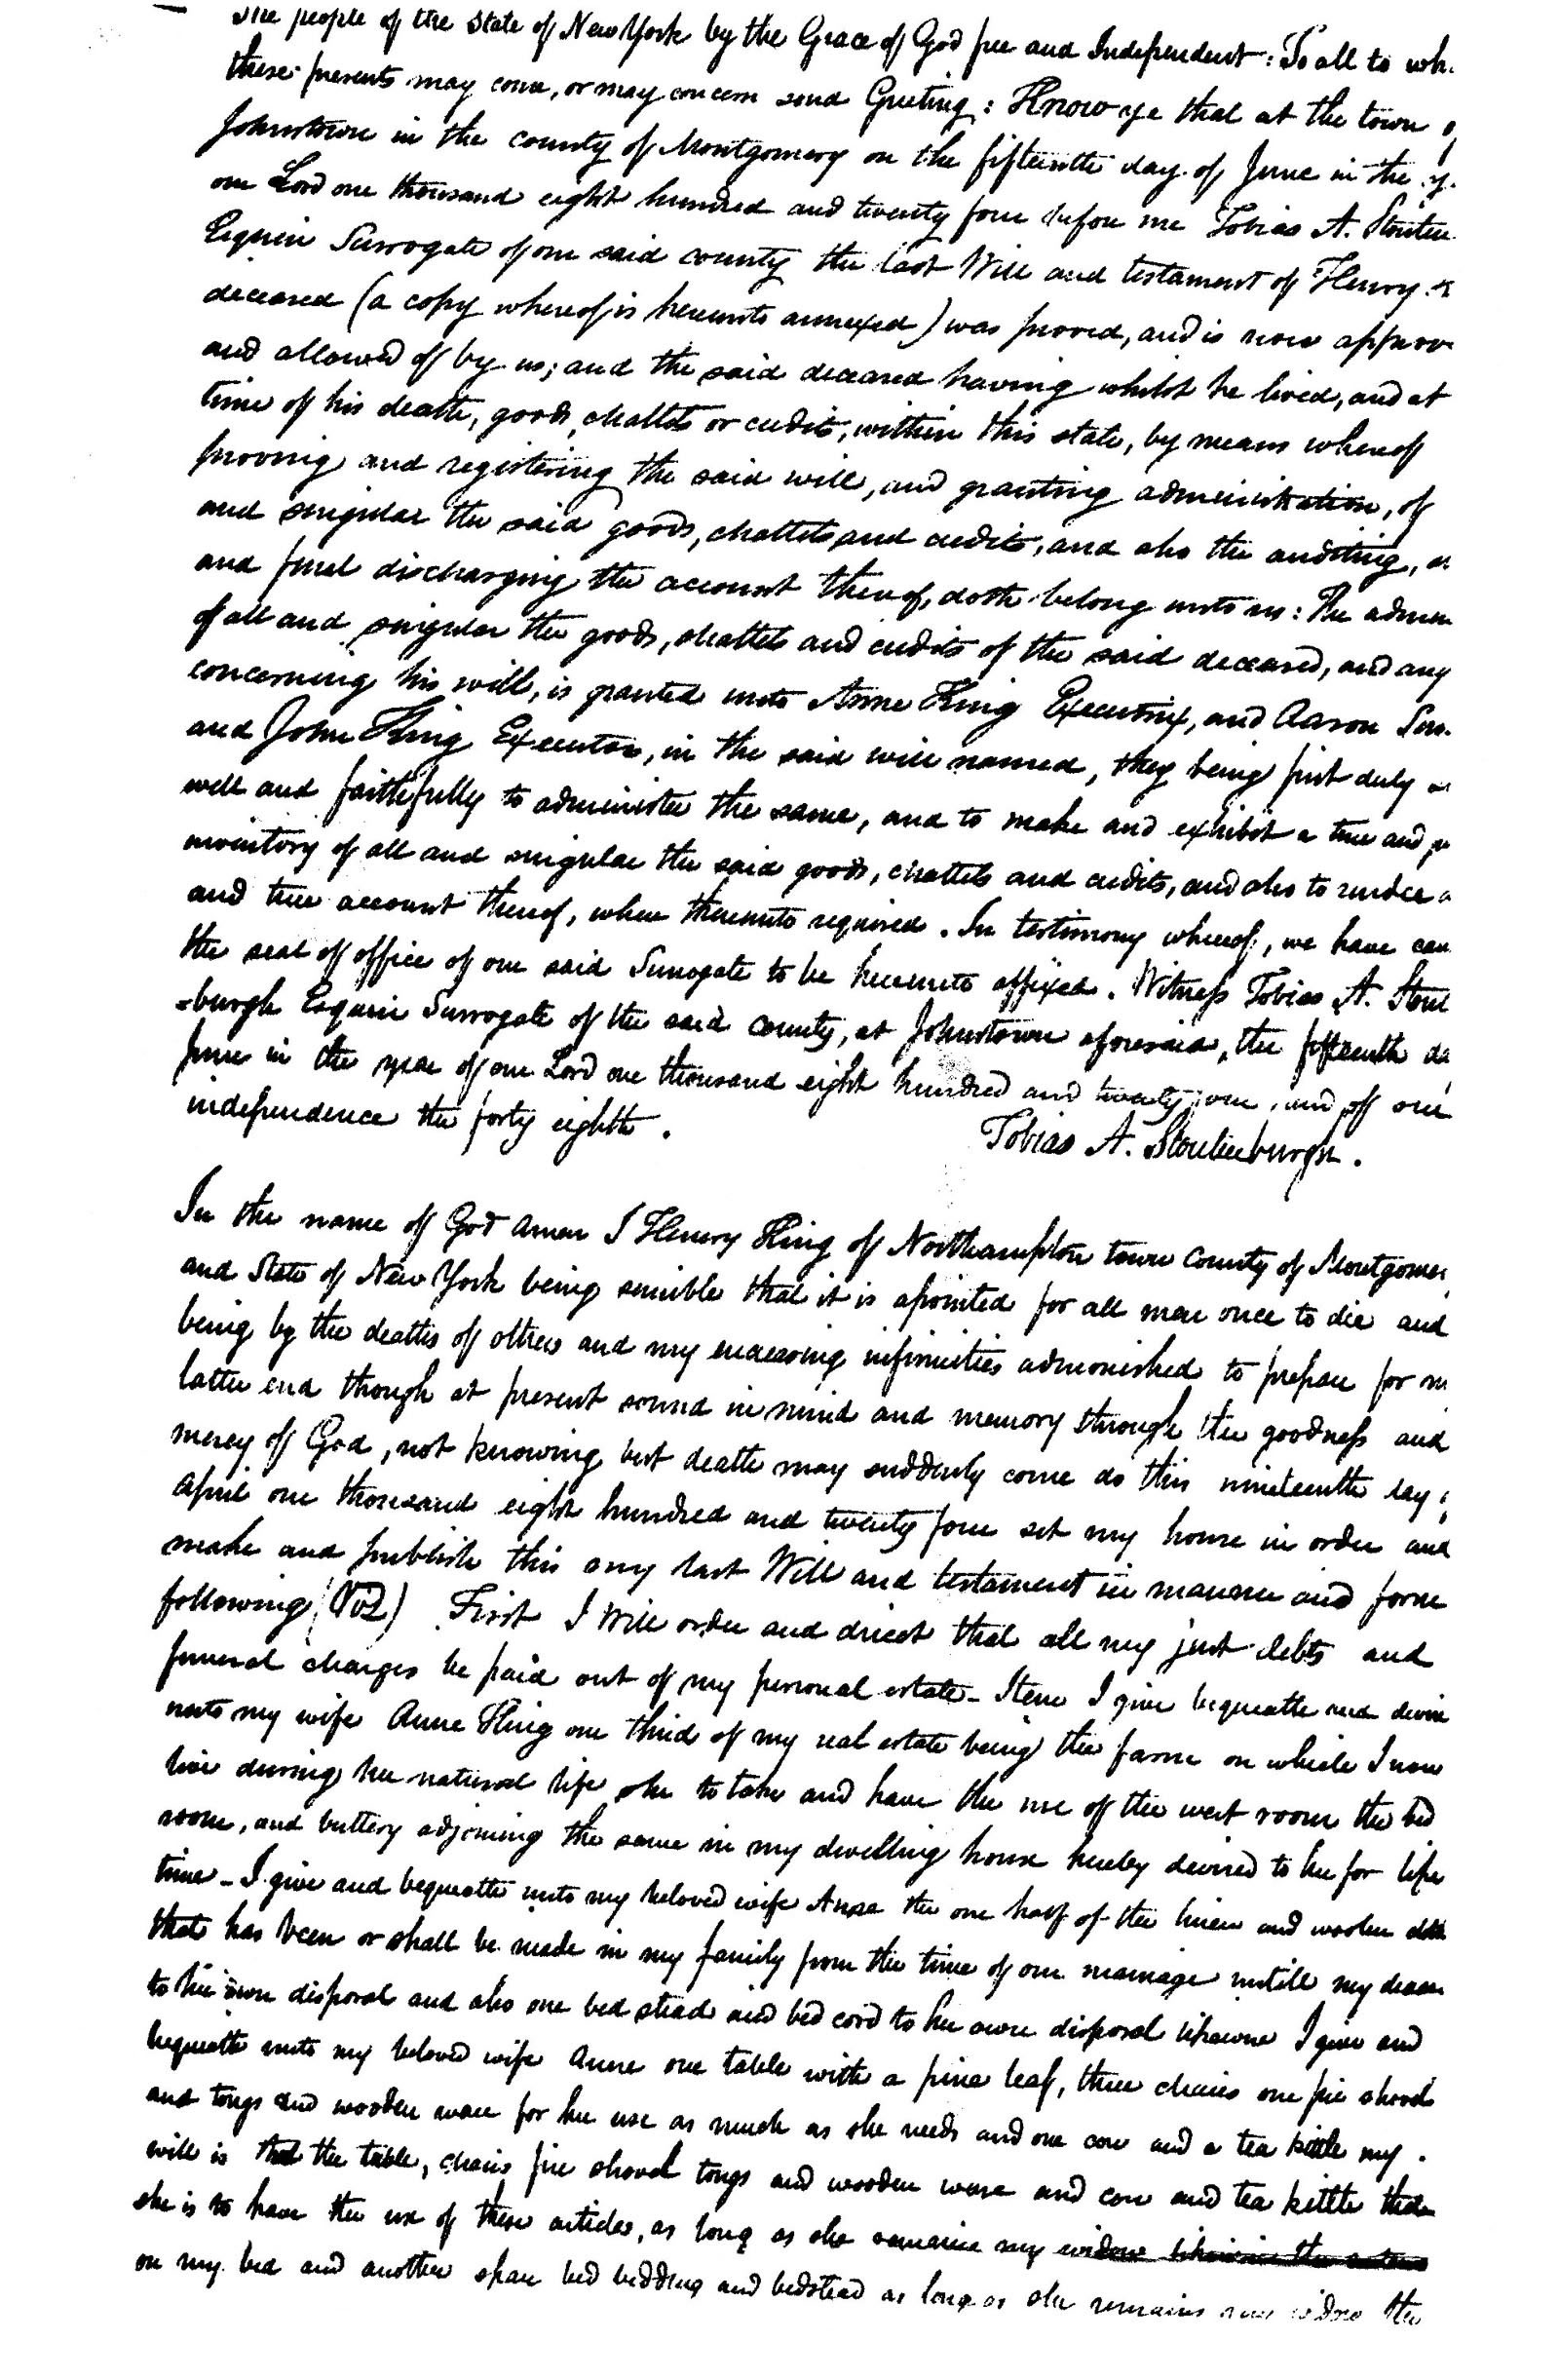 The people of the State of New York by the Grace of God free and Independent: To all to wh
these presents may come, or may concern send Greeting: Know ye that at the town
Johnstown in the county of Montgomery on the fifteenth day of June in the y
our Lord one thousand eight hundred and twenty four before me Tobias A. Stouten
Esquire Surrogate of our said county the last Will and testament of Henry
deceased (a copy whereof is hereunto annexed) was proved, and is now approv
and allowed of by us; and the said deceased having whilst he lived, and at
time of his death, goods, chattels or credits, within this state, by means whereof
prooving and registering the said will, and granting administration, of
and singular the said goods, chattels and credits, and also the auditing,
and final discharging the account thereof, doth belong unto us: The admin
of all and singular the goods, chattels and credits of the said deceased, and any
concerning his will, is granted unto Anne King Executrix, and Aaron
and John King Executors, in the said will named, they being first duly
well and faithfully to administer the same, and to make and exhibit a true and
inventory of all and singular the said goods, chattels and credits, and also to render a
and true account thereof, when thereunto required. In testimony whereof, we have cau
the seal of office of our said Surrogate to be hereunto affixed. Witness Tobias A. Stout
-burgh Esquire Surrogate of the said County, at Johnstown aforesaid, the fifteenth da
June in the year of our Lord one thousand eight hundred and twenty four, and of our
independence the forty eighth.
Tobias A. Stoutenburgh.
In the name of God Amen I Henry King of Northampton town County of Montgomer
and State of New York being sensible that it is apointed for all men once to die and
being by the deaths of others and my encreasing infirmities admonished to prepare for m
latter end though at present sound in mind and memory through the goodness and
mercy of God, not knowing but death may suddenly come do this nineteenth day
April one thousand eight hundred and twenty four set my house in order and
make and publish this my last Will and testament in manner and form
following (Viz) First I Will order and direct that all my just debts and
funeral charges be paid out of my personal estate - Item I give bequeath and devise
unto my wife Anne King one third of my real estate being the farm on which I now
live during her natural life she to take and have the use of the west room the bed
room, and buttery adjoining the same in my dwelling house hereby devised to her for life
time - I give and bequeath unto my beloved wife Anne the one half of the linen and woolen cloth
that has been or shall be made in my family from the time of our marriage untill my decease
to her own disposal and also one bed stead and bed cord to her own disposal likewise I give and
bequeath unto my beloved wife Anne one table with a pine leaf, three chairs one fire shovel
and tongs and wooden ware for her use as much as she needs and one cow and a tea kittle my
will is that the table, chairs fire shovel tongs and wooden ware and cow and tea kettle that
she is to have the use of these articles, as long as she remains my widow likewise the
on my bed and another spare bed bedding and bedstead as long as she remains my widow the